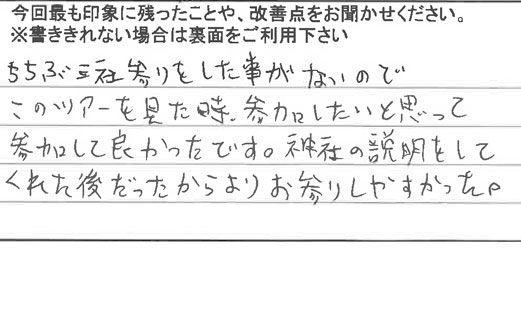 今回最も印象に残ったことや、改善点をお聞かせください。
※書ききれない場合は裏面をご利用下さい
ちちぶ三社参りをした事がないので
このツアーを見た時、参加したいと思って
参加して良かったです。神社の説明をして
くれた後だったからよりお参りしやすかった。